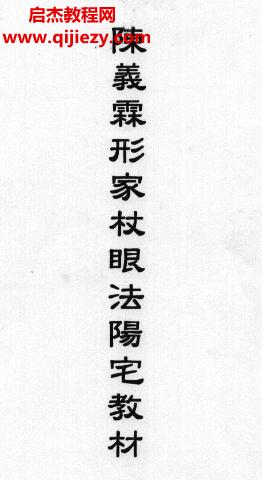 启杰教程网
www.qijiezy.com
陳義霖形家杖眼法陽宅教材